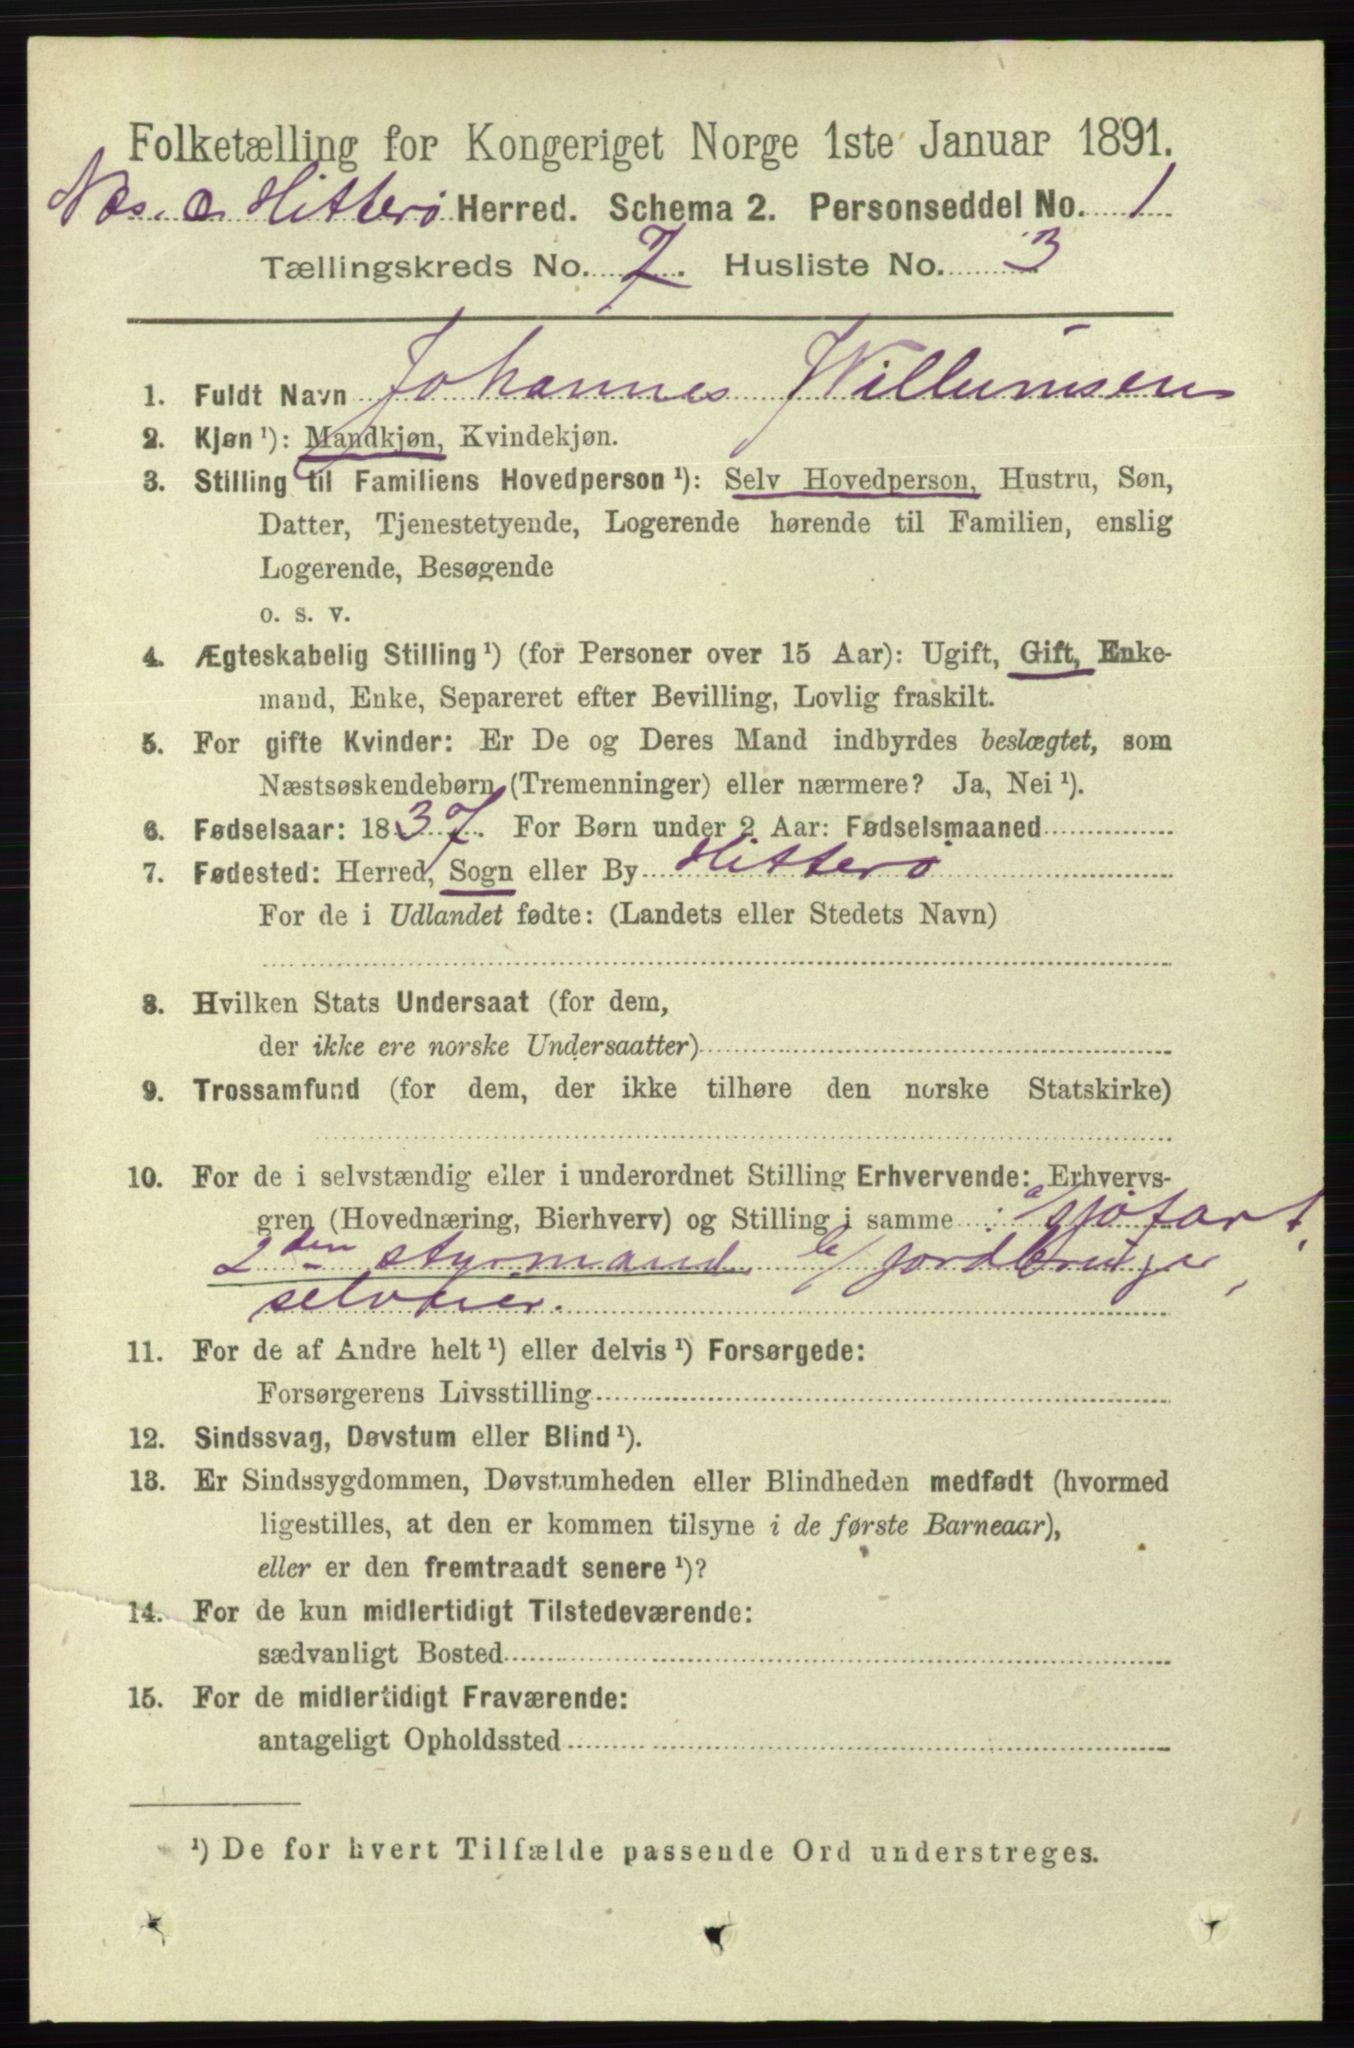 Folketælling for Kongeriget Norge 1ste Januar 1891.
Næs o Hitterø Herred. Schema 2. Personseddel No. 1
Tællingskreds No. 7. Husliste No. 3
1. Fuldt Navn Johannes Willumsen
2. Kjøn ¹): Mandkjøn, Kvindekjøn.
3. Stilling til Familiens Hovedperson ¹): Selv Hovedperson, Hustru, Søn,
Datter, Tjenestetyende, Logerende hørende til Familien, enslig
Logerende, Besøgende
o. s. v.
4. Ægteskabelig Stilling ¹) (for Personer over 15 Aar): Ugift, Gift, Enke-
mand, Enke, Separeret efter Bevilling, Lovlig fraskilt.
5. For gifte Kvinder: Er De og Deres Mand indbyrdes beslægtet, som
Næstsøskendebørn (Tremenninger) eller nærmere? Ja, Nei ¹).
6. Fødselsaar: 1837. For Børn under 2 Aar: Fødselsmaaned
7. Fødested: Herred, Sogn eller By Hitterø
For de i Udlandet fødte: (Landets eller Stedets Navn)
8. Hvilken Stats Undersaat (for dem,
der ikke ere norske Undersaatter)
9. Trossamfund (for dem, der ikke tilhøre den norske Statskirke)
10. For de i selvstændig eller i underordnet Stilling Erhvervende: Erhvervs-
gren (Hovednæring, Bierhverv) og Stilling i samme : a/ sjøfart,
2den styrmand b/ jordbruger
selveier.
11. For de af Andre helt ¹) eller delvis ¹) Forsørgede:
Forsørgerens Livsstilling
12. Sindssvag, Døvstum eller Blind ¹).
13. Er Sindssygdommen, Døvstumheden eller Blindheden medfødt (hvormed
ligestilles, at den er kommen tilsyne i de første Barneaar),
eller er den fremtraadt senere ¹)?
14. For de kun midlertidigt Tilstedeværende:
sædvanligt Bosted
15. For de midlertidigt Fraværende:
antageligt Opholdssted
¹) De for hvert Tilfælde passende Ord understreges.